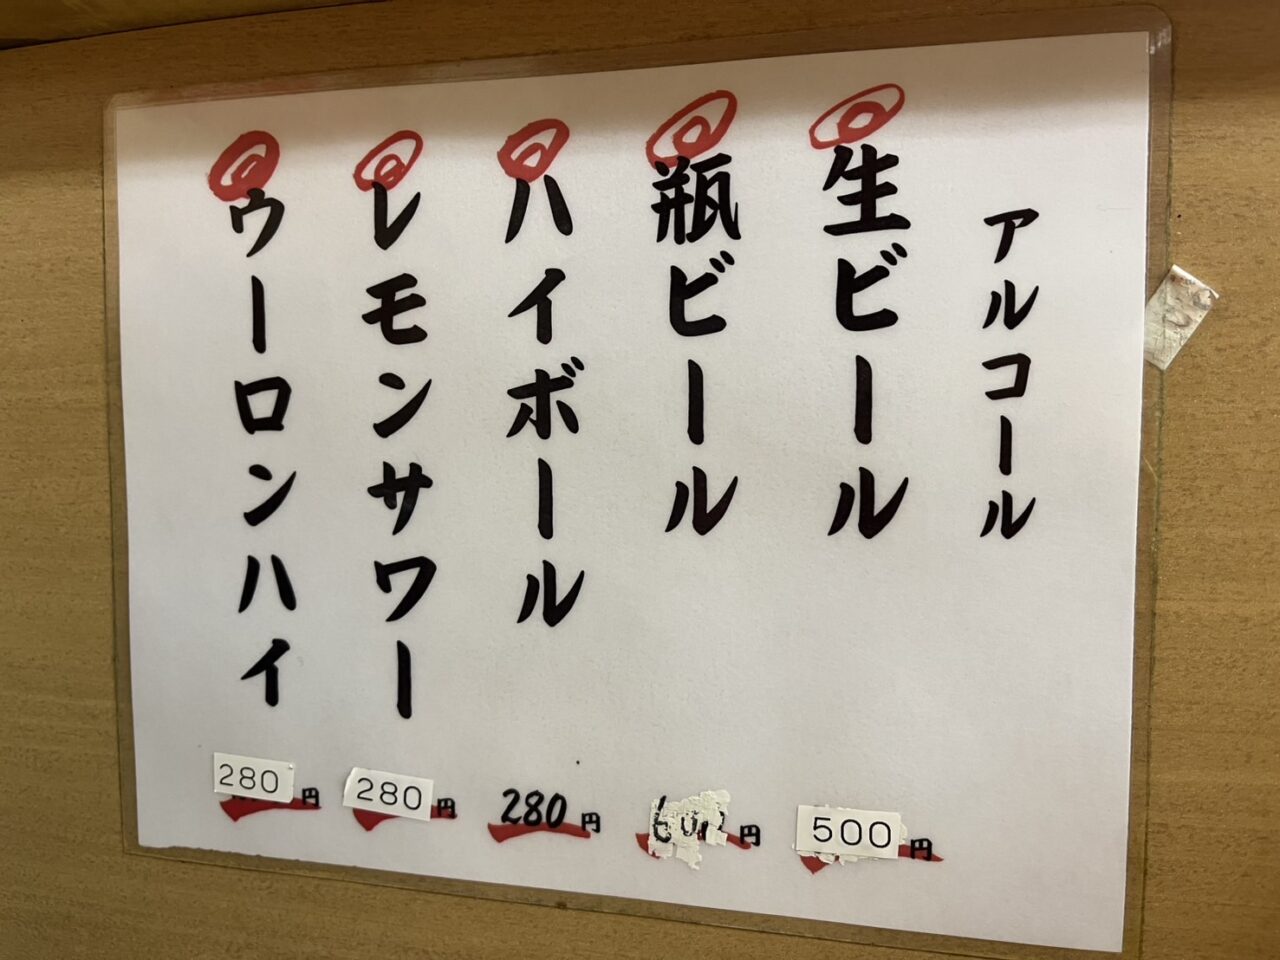 アルコール
生ビール 500円
瓶ビール 円
ハイボール 280円
レモンサワー 280円
ウーロンハイ 280円